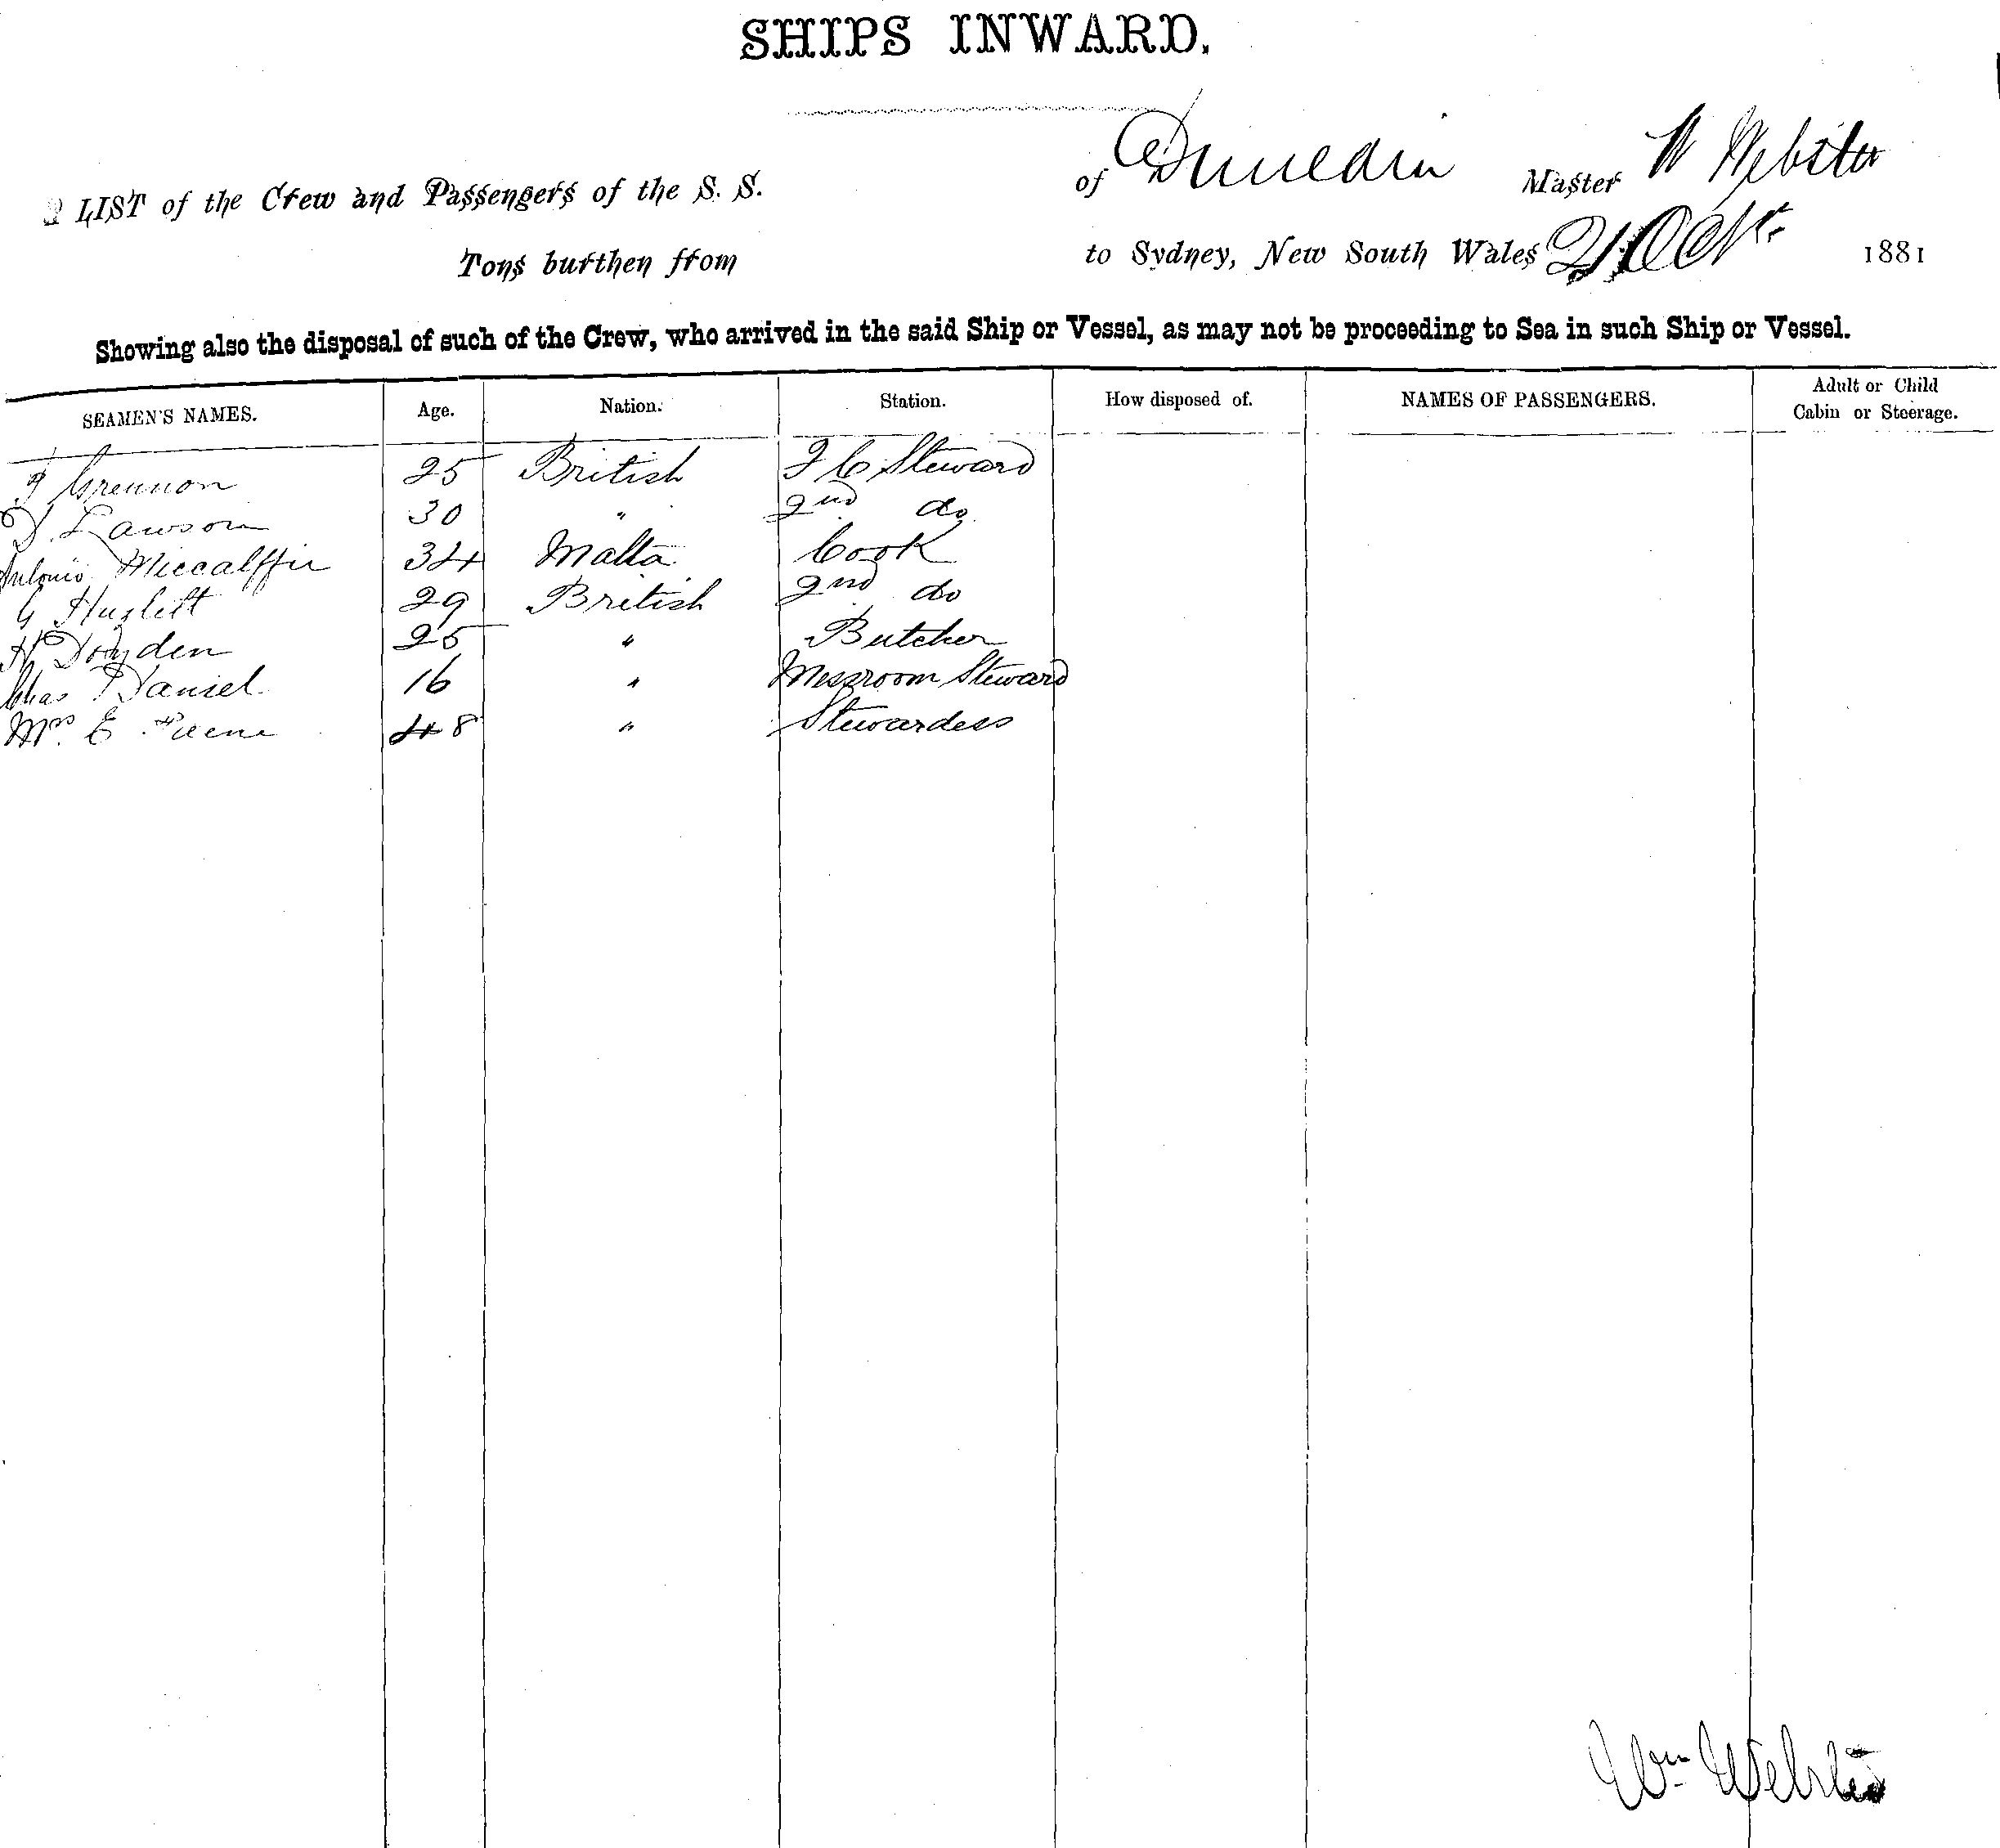 SHIPS INWARD.
LIST of the Crew and Passengers of the S. S. of Dunedin Master W Webster
Tons burthen from to Sydney, New South Wales 21 Oct. 1881
Showing also the disposal of such of the Crew, who arrived in the said Ship or Vessel, as may not be proceeding to Sea in such Ship or Vessel.
SEAMEN'S NAMES. Age. Nation. Station. How disposed of. NAMES OF PASSENGERS. Adult or Child Cabin or Steerage.
Grennon 25 British F C Steward
Lawson 30 " 2nd do
Antonio 34 Malta Cook
G 29 British 2nd do
H 25 " Butcher
Chas Daniel 16 " Messroom Steward
Mrs. E 48 " Stewardess
Wm Webster